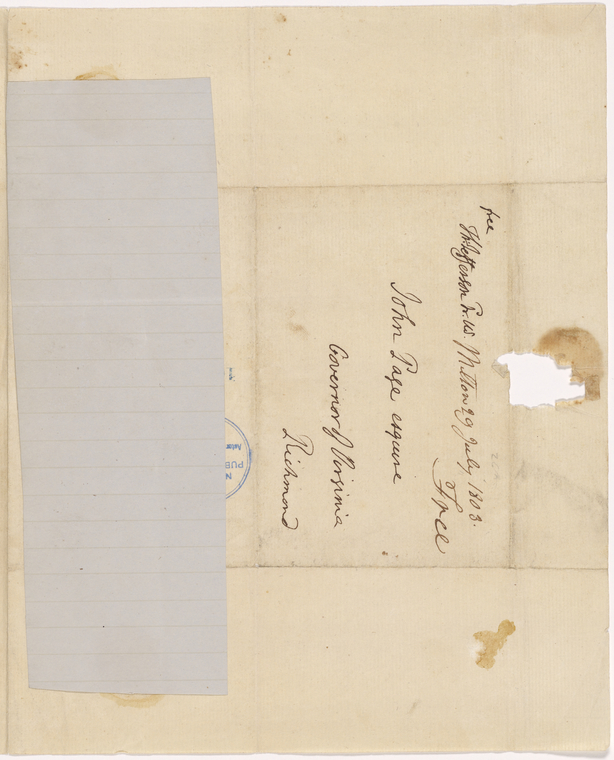 free
Th: Jefferson Pr. US. Milton 29 July 1803.
Free
John Page esquire
Governor of Virginia
Richmond
PUB